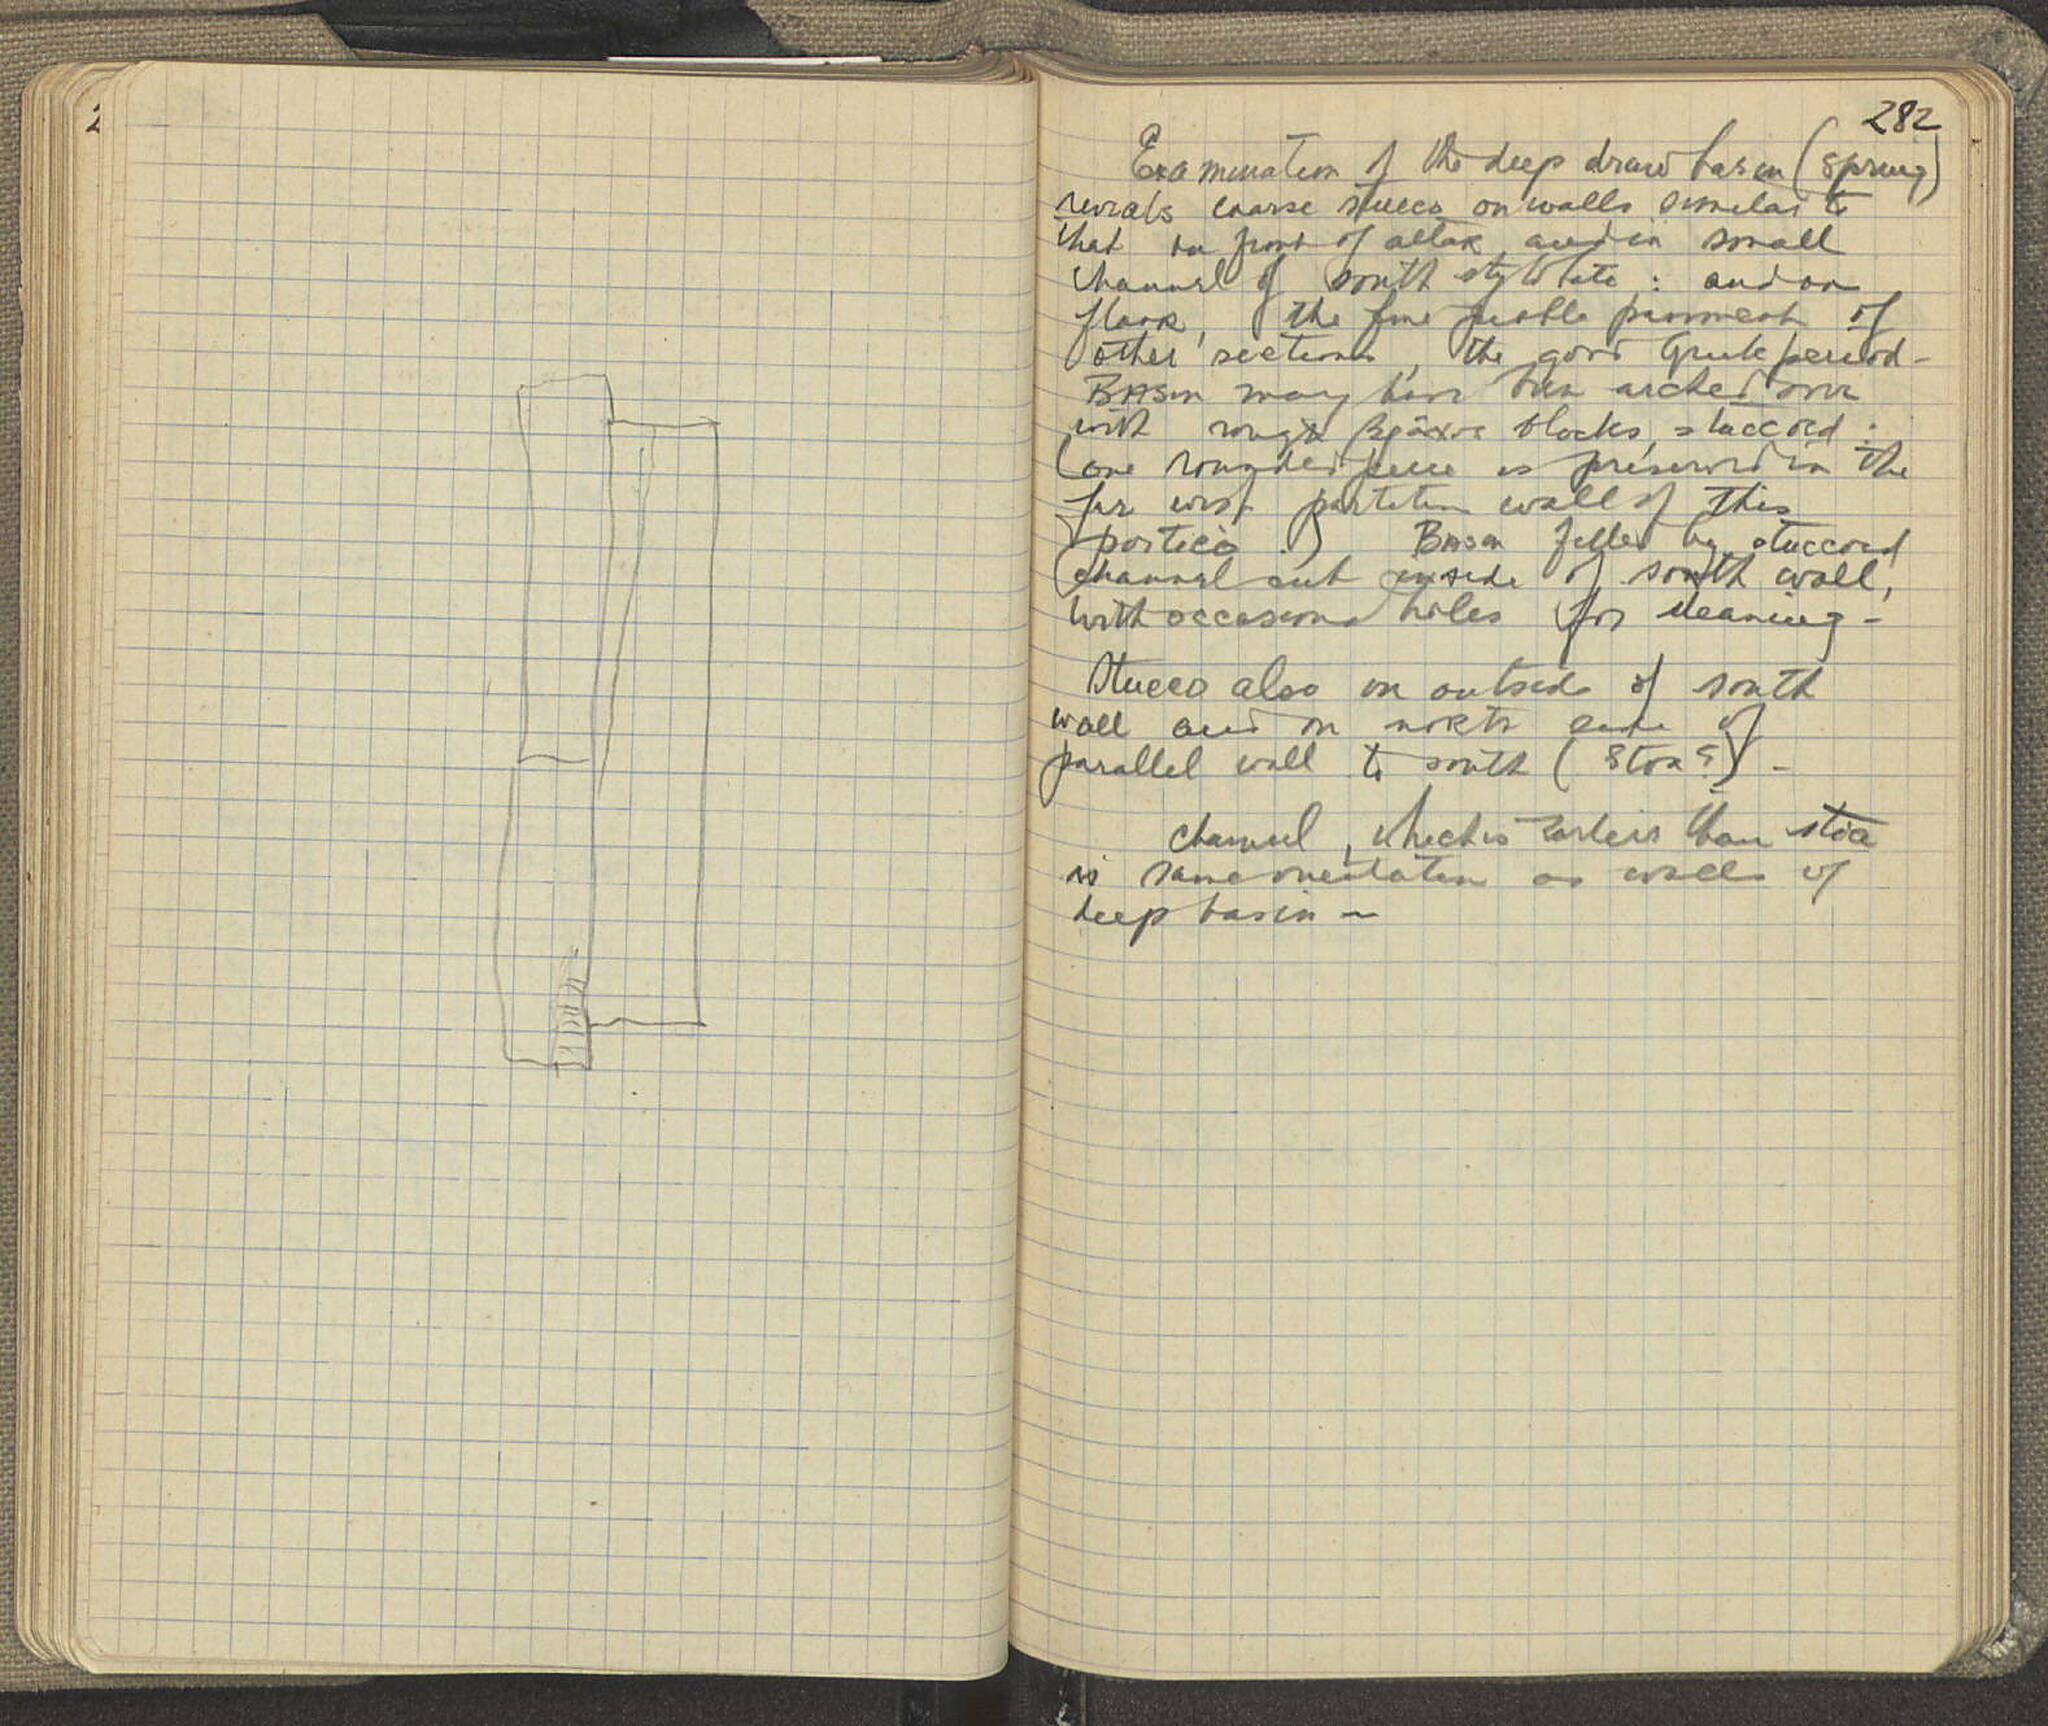 2
282
Examination of the deep draw basin (spring)
reveals coarse stucco on walls similar to
that on front of altar and in small
channel of south stylobate : and on
floor, the fine pebble pavement of
other sections, the good Greek period -
Basin may have been arched over
with rough βράχος blocks, stuccoed :
(one rounded piece is preserved in the
far west partition wall of this
portico .) Basin filled by stuccoed
channel cut inside of south wall,
with occasional holes for cleaning -
Stucco also on outside of south
wall and on north side of
parallel wall to south (Stoa?) -
Channel, which is earlier than stoa
is same orientation as walls of
deep basin -